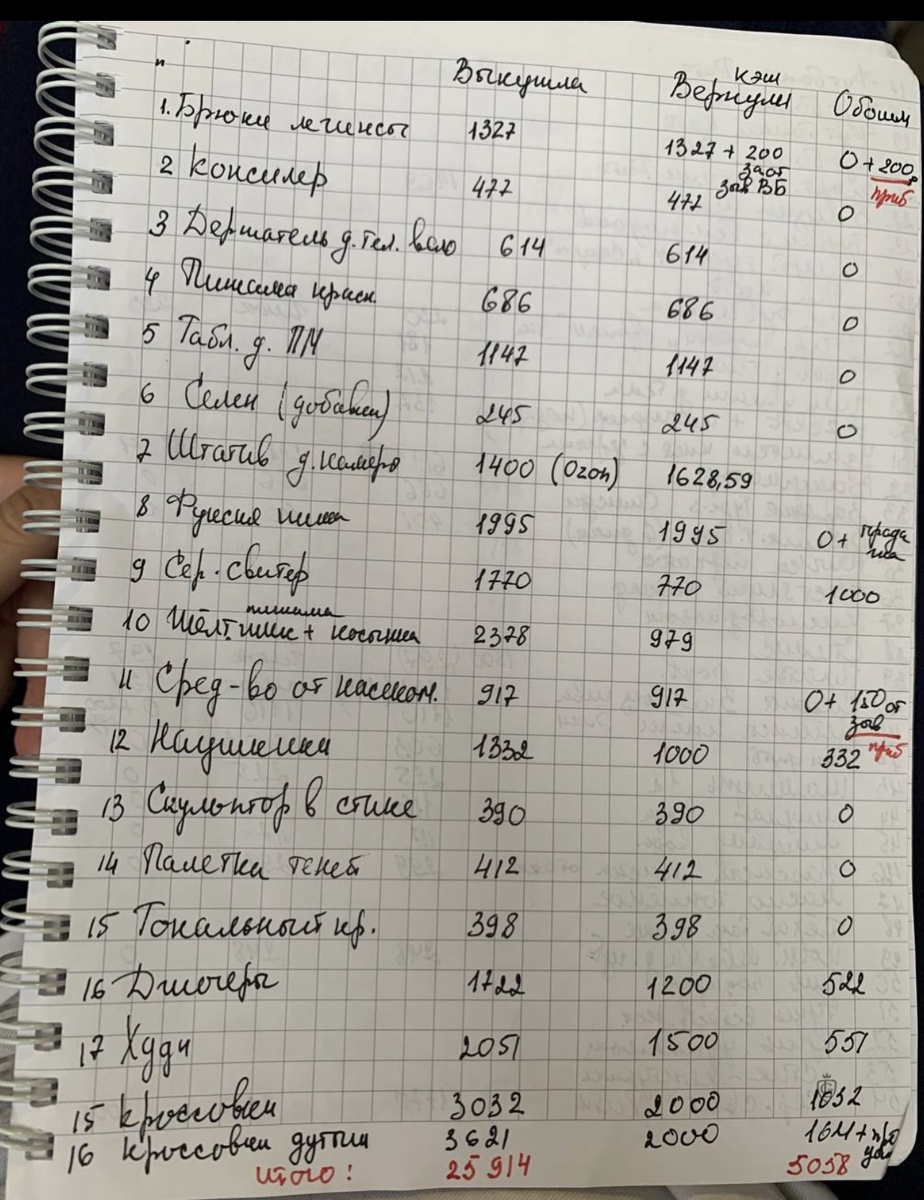 Выкупила Вернули кэш Обошл
1. Брюки легинсы 1327 1327 + 200 за отзыв ВБ 0 + 200р приб
2 Консилер 477 477 0
3 Держатель д. тел. вело 614 614 0
4 Пижама красн. 686 686 0
5 Табл. д. ПМ 1147 1147 0
6 Селен (добавки) 245 245 0
7 Штатив д. камеро 1400 (Ozon) 1628,59
8 Фуксия пижа 1995 1995 0 + продана
9 Сер. свитер 1770 770 1000
10 Жёлт. пижама + косынка 2378 979
11 Сред-во от насеком. 917 917 0 + 150 отзыв приб
12 Наушники 1332 1000 332
13 Скульптор в стике 390 390 0
14 Палетка теней 412 412 0
15 Тональный кр. 398 398 0
16 Джогеры 1722 1200 522
17 Худи 2051 1500 551
15 Кроссовки 3032 2000 1032
16 Кроссовки дутыш 3621 2000 1621 +
Итого: 25 914 5058